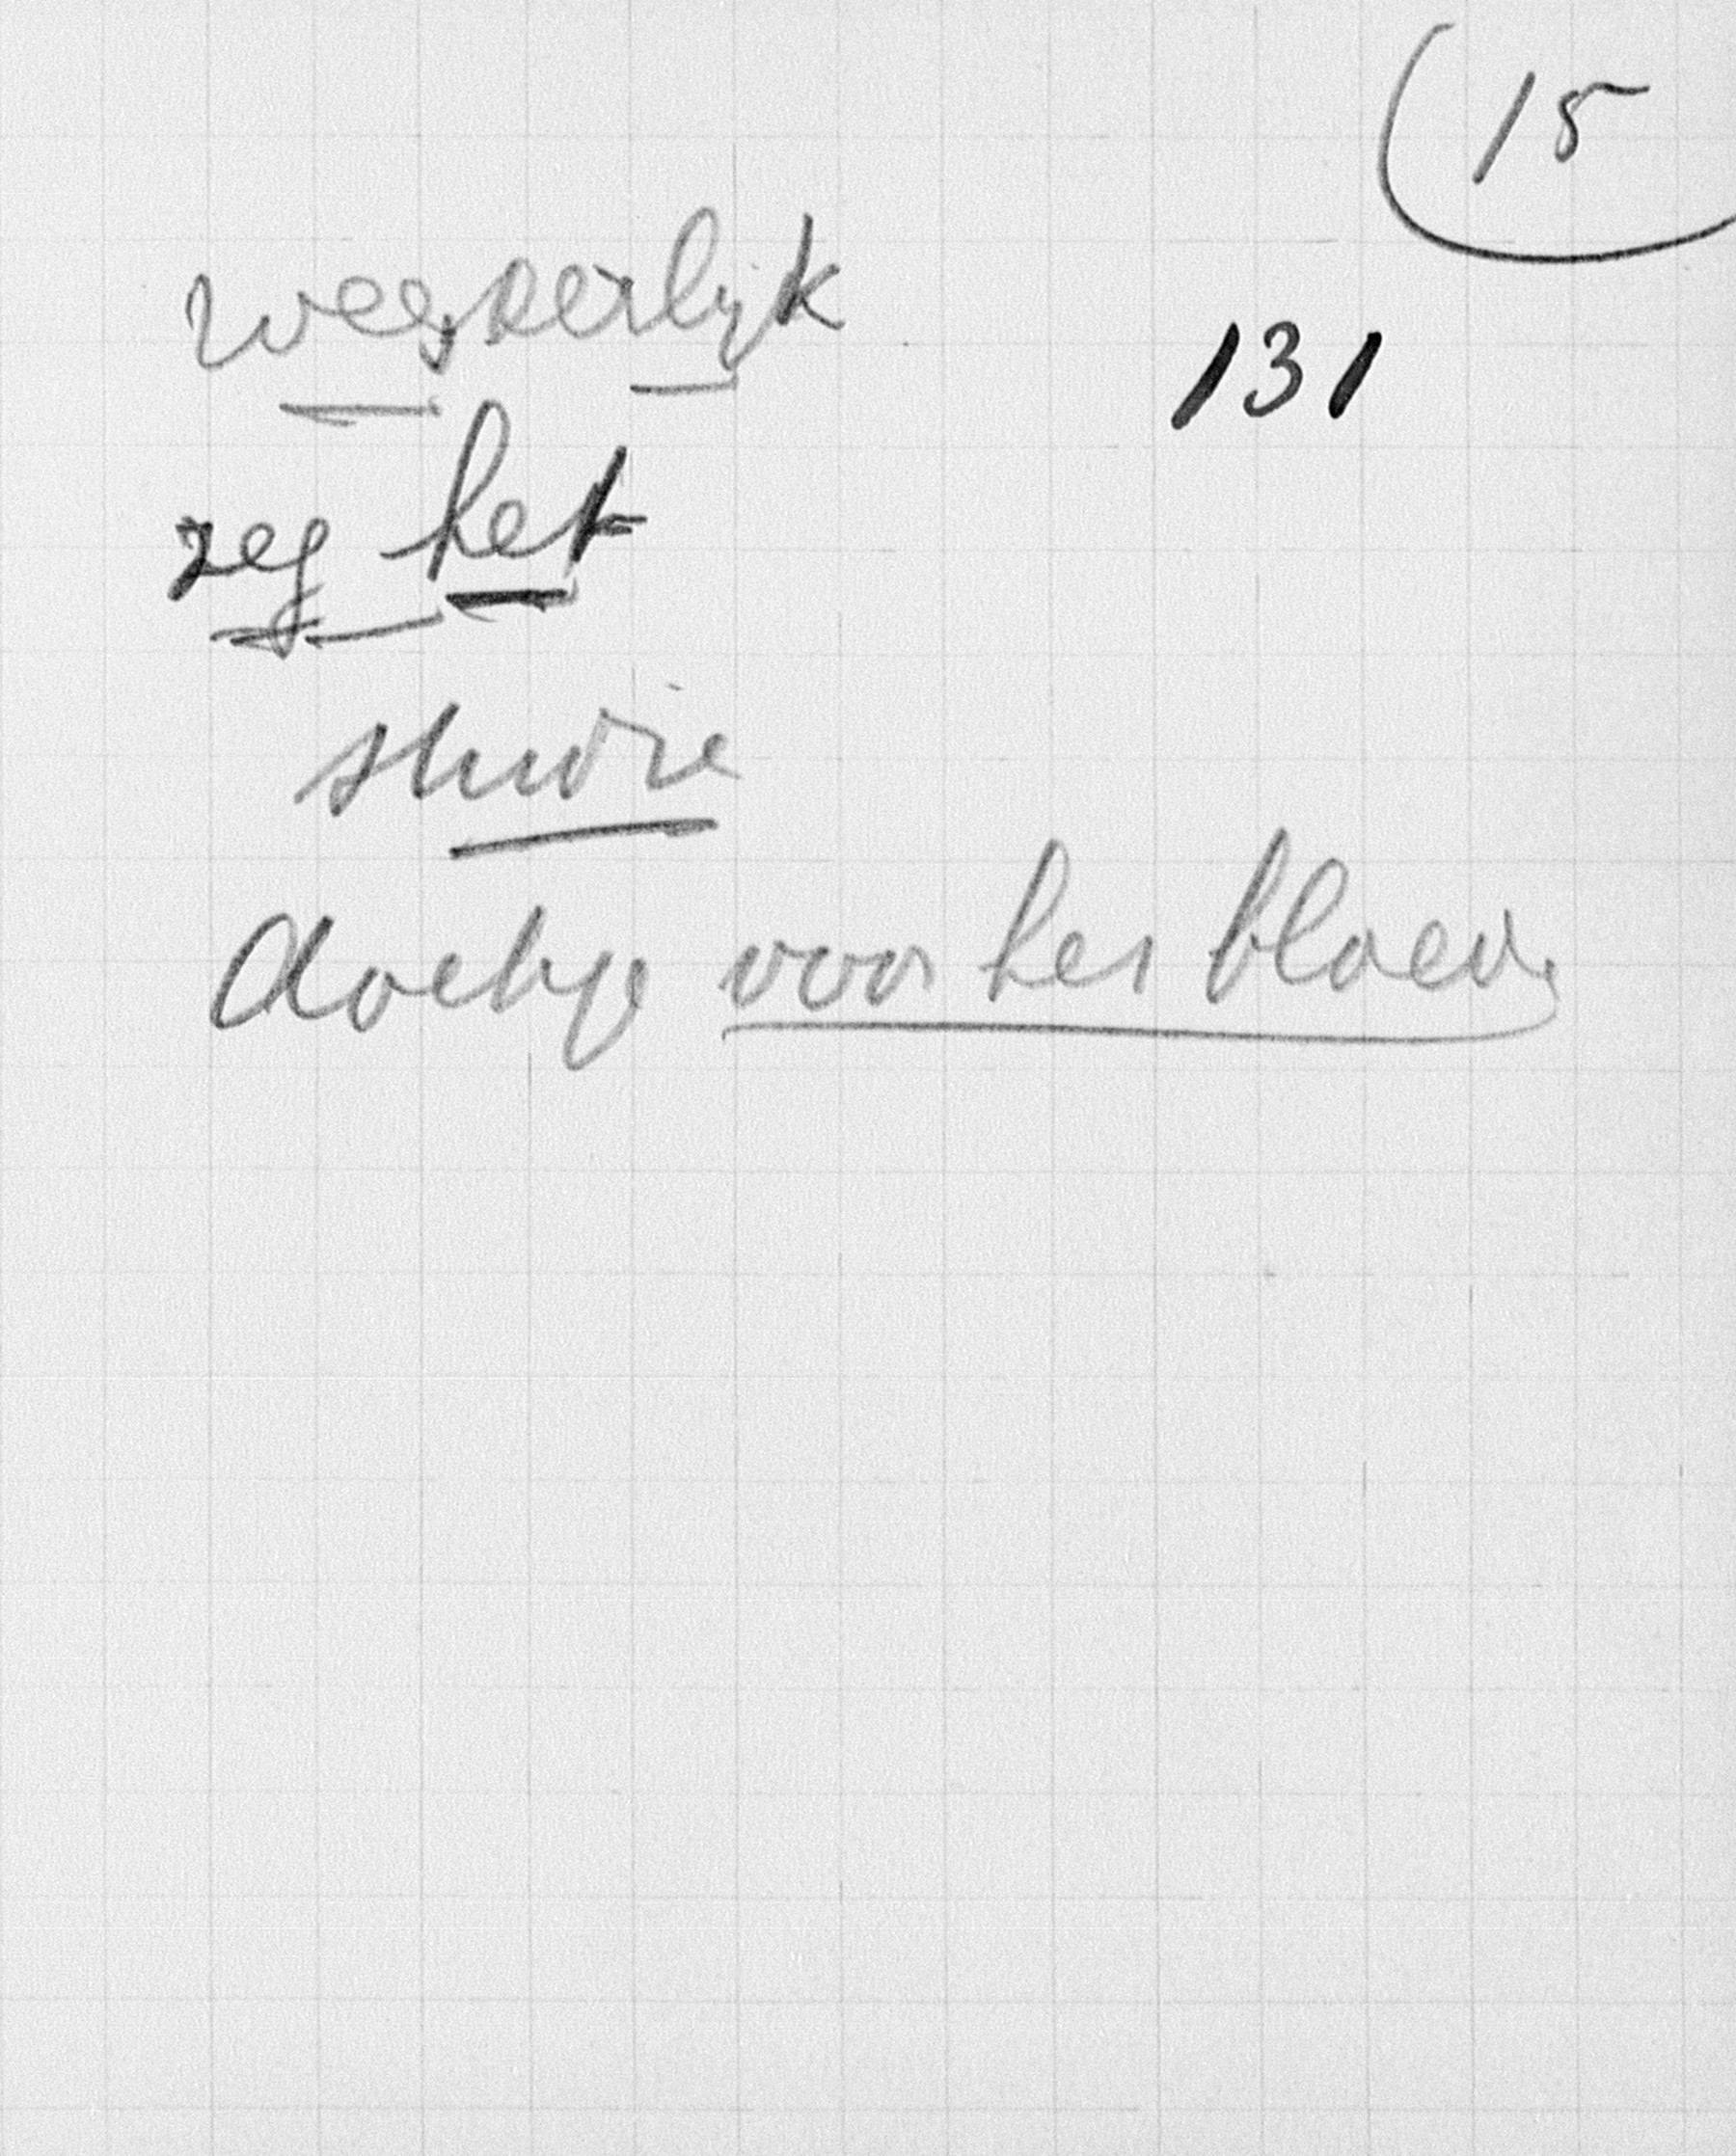 15
131
zeg het
studie
doekje voor het bloed